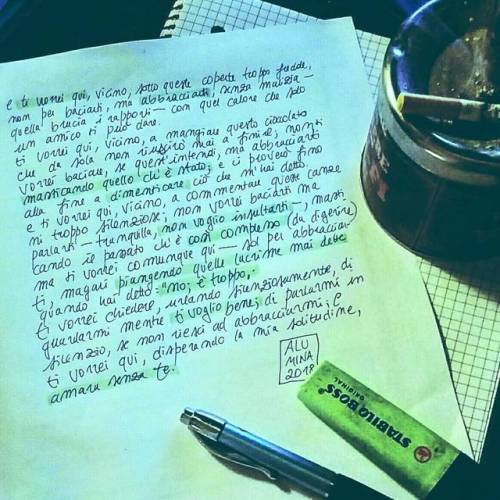 e ti vorrei qui, vicino, sotto queste coperte troppo fredde,
non per baciarti, ma abbracciarti, senza malizia —
quella brucia i rapporti — con quel calore che solo
un amico ti può dare.
ti vorrei qui, vicino, a mangiare questo cioccolato
che da sola non riuscirò mai a finire; non ti
vorrei baciare, se quest'intendi, ma abbracciarti
masticando quello che è stato; e ci proverò fino
alla fine a dimenticare ciò che m'hai detto.
e ti vorrei qui, vicino, a commentare queste canzoni
mi troppo silenziose, non vorrei baciarti ma
parlarti — tranquilla, non voglio insultarti —, masti
cando il passato ch'è così complesso (da digerire)
ma ti vorrei comunque qui — sol per abbracciar
ti, magari piangendo quelle lacrime mai
quando hai detto: "no, è troppo".
ti vorrei chiedere, urlando silenziosamente, di
guardarmi mentre ti voglio bene; di parlarmi in
silenzio, se non riesci ad abbracciarmi; e
ti vorrei qui, disperando la mia solitudine,
amara senza te.
ALU
MINA
2018
STABILO BOSS
ORIGINAL